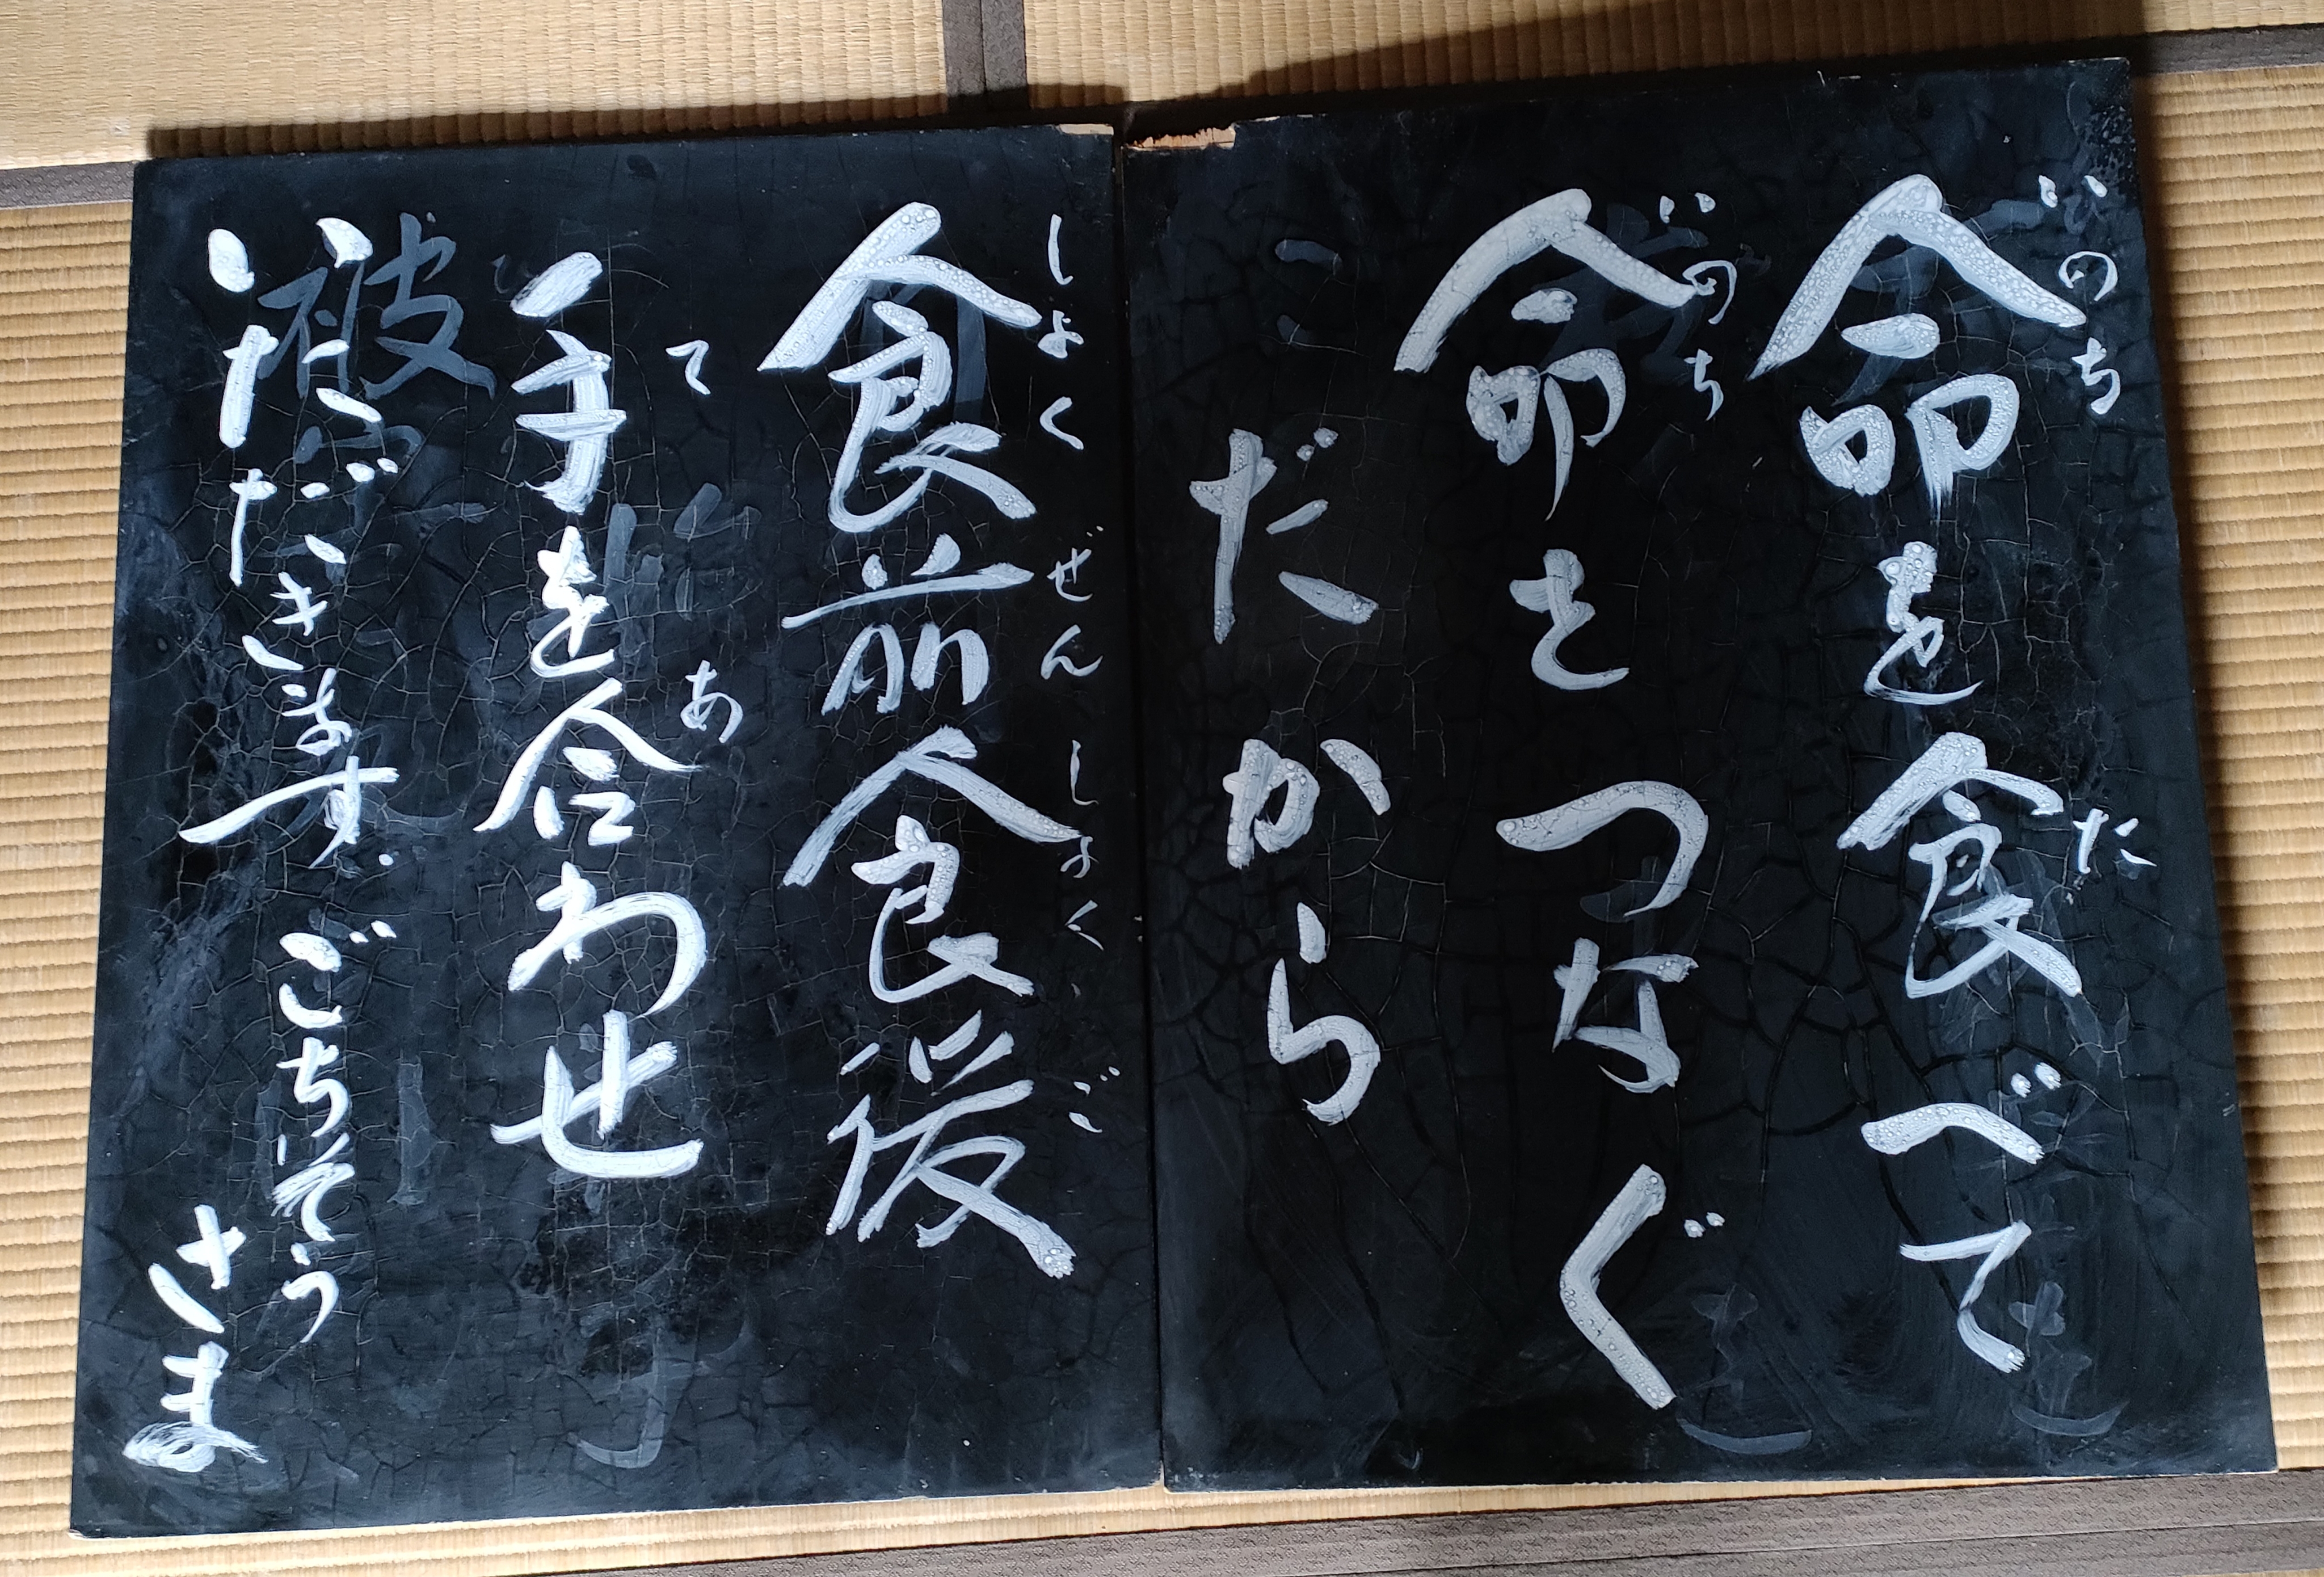 命を食べて
いのち　た
命をつなぐ
いのち
だから
食前食後
しょくぜんしょくご
手を合わせ
て　あ
いただきます
ごちそう
さま